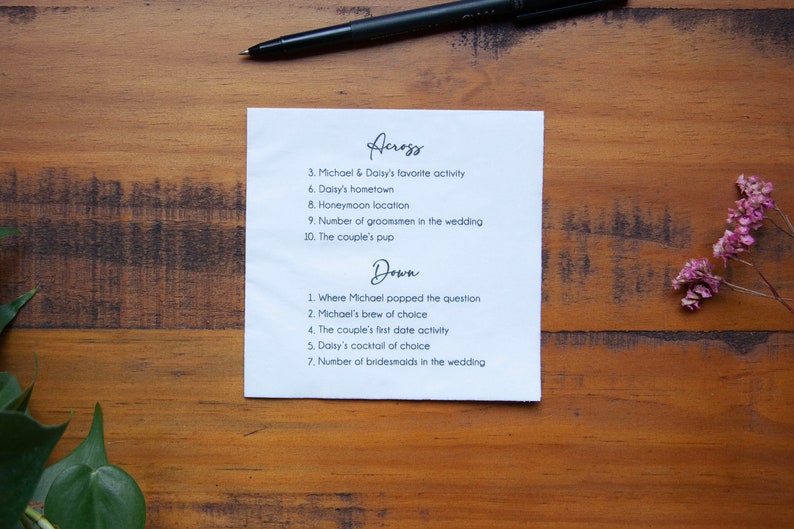 Across
3. Michael & Daisy's favorite activity
6. Daisy's hometown
8. Honeymoon location
9. Number of groomsmen in the wedding
10. The couple's pup
Down
1. Where Michael popped the question
2. Michael's brew of choice
4. The couple's first date activity
5. Daisy's cocktail of choice
7. Number of bridesmaids in the wedding